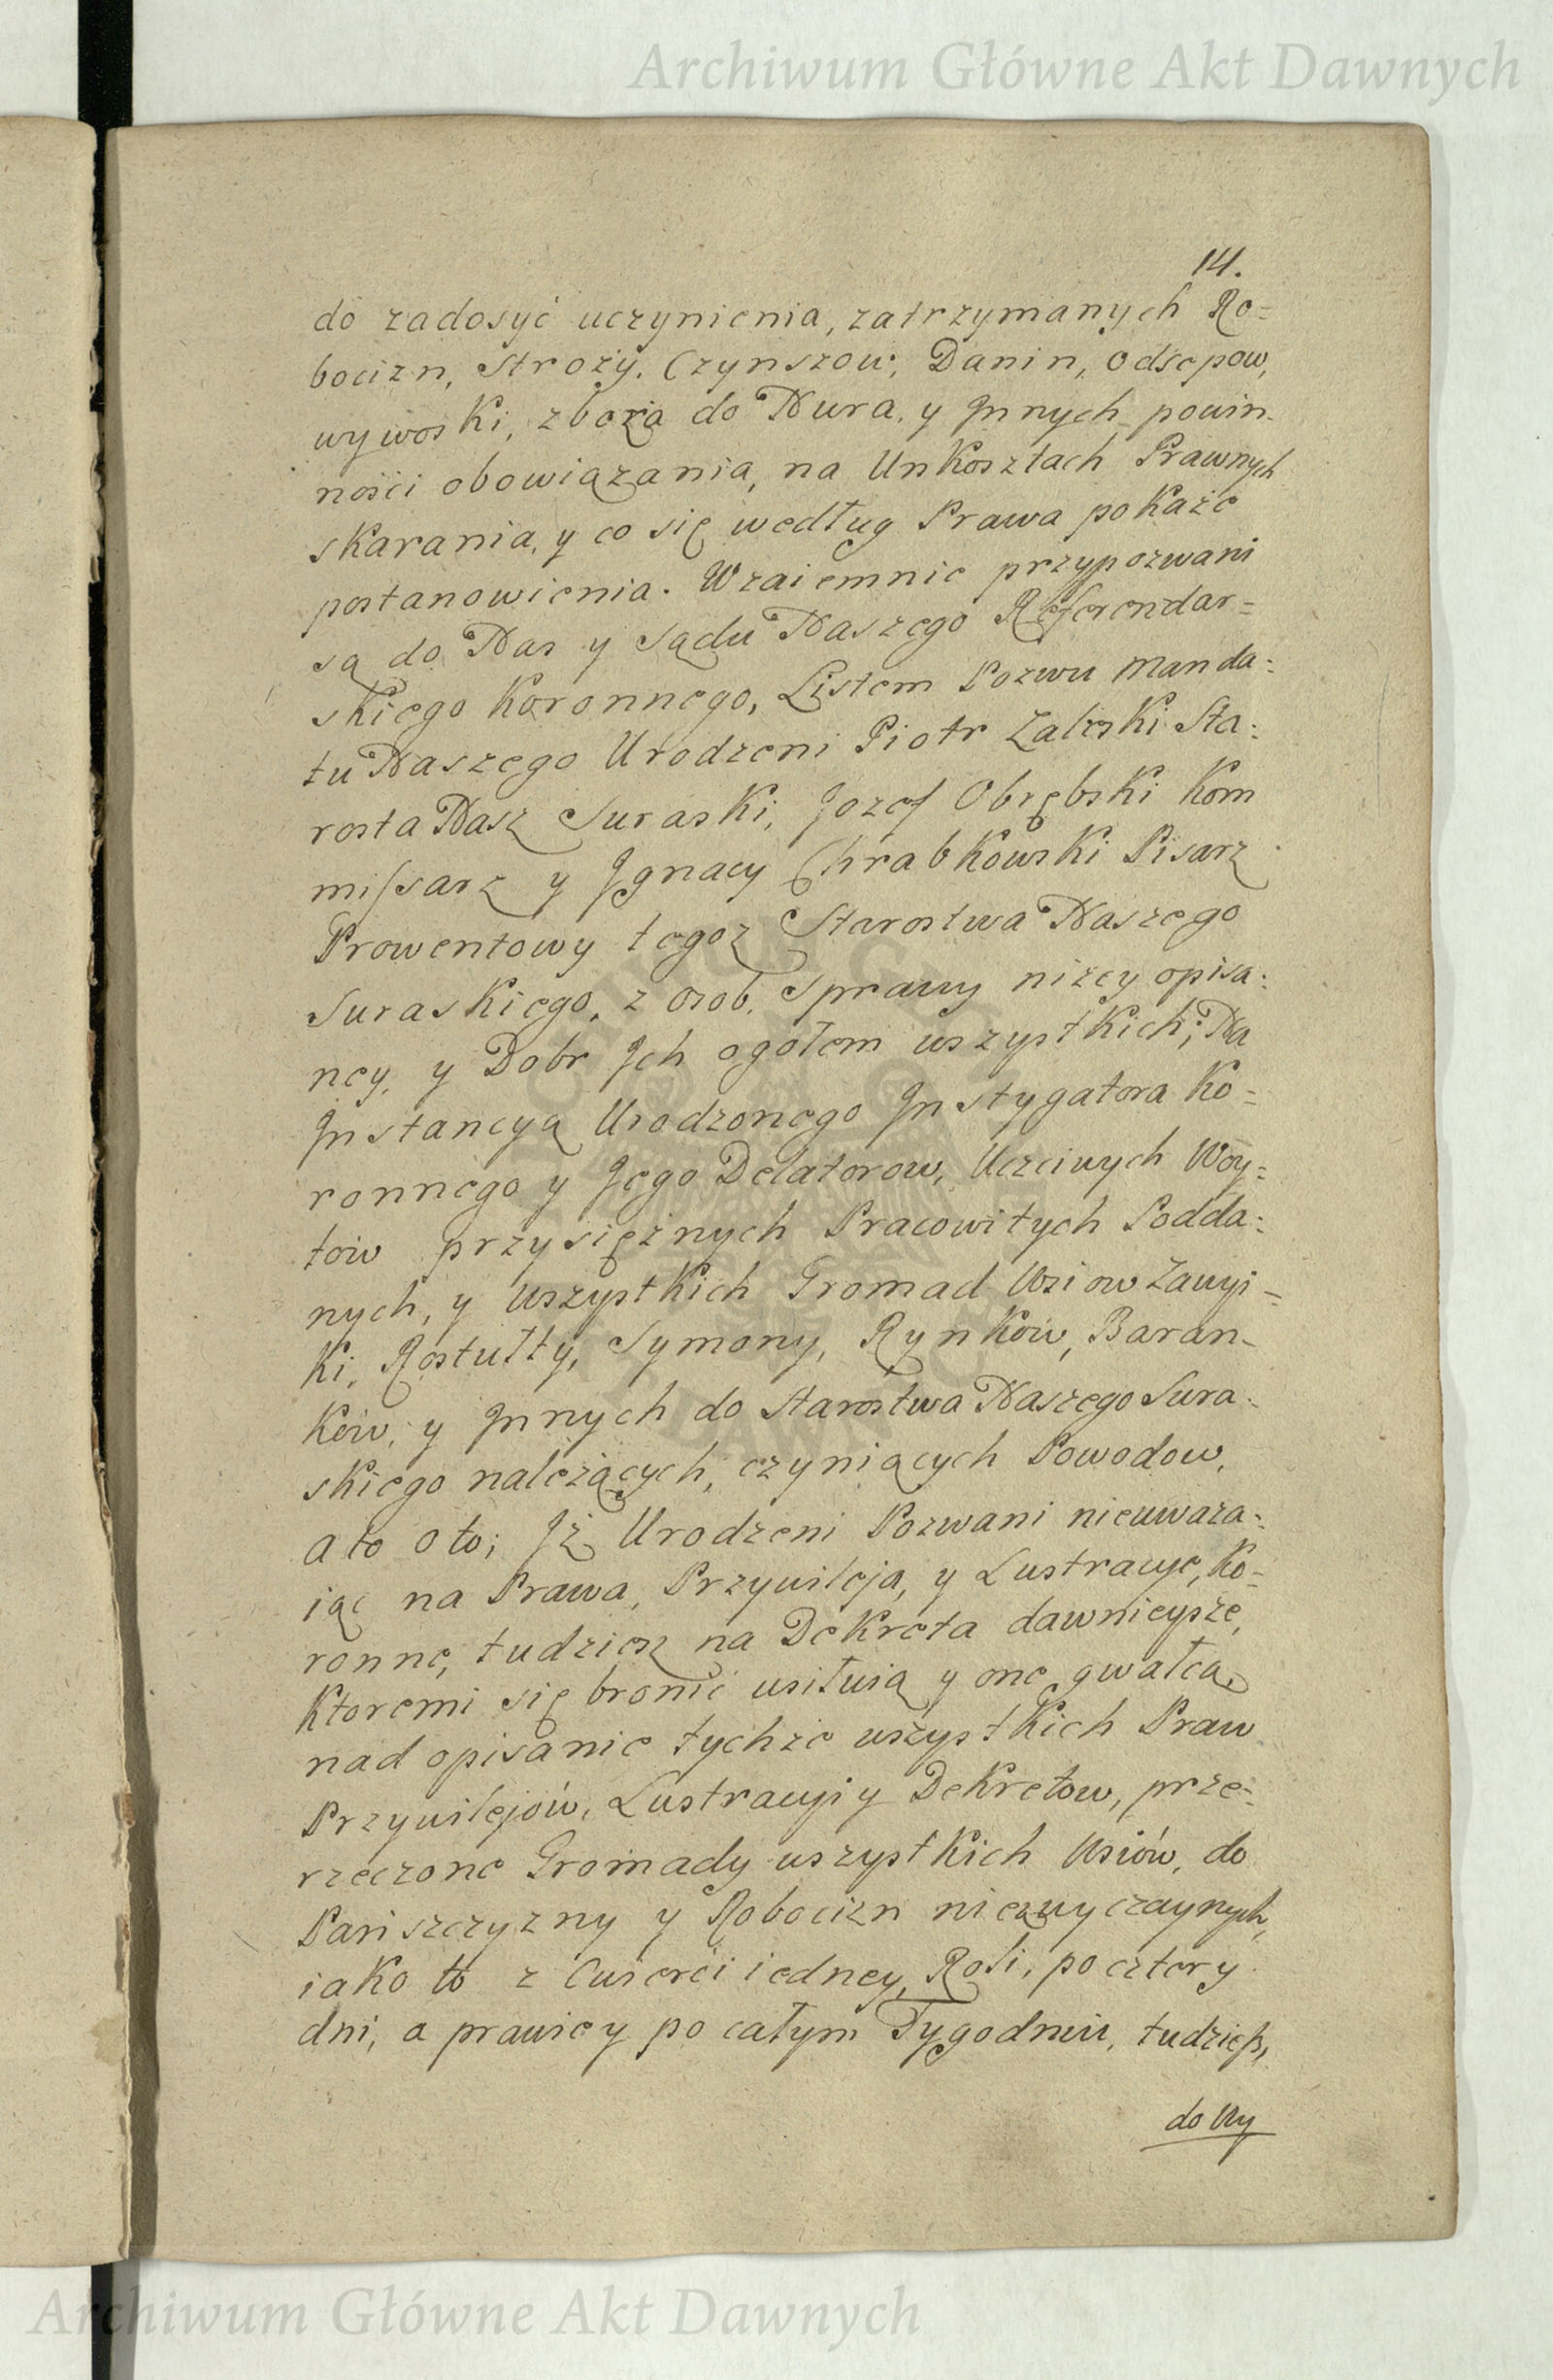 Archiwum Główne Akt Dawnych
14.
do zadosyć uczynienia, zatrzymanych Ro=
bocizn, Stroży. Czynszow, Danin, Odsepow,
wywoski, zboża do Nura, y Jnnych powin-
ności obowiązania, na Unkosztach Prawnych
skarania, y co się według Prawa pokaże
postanowienia. Wzaiemnie przypozwani
są do Nas y Sądu Naszego Referendar=
skiego Koronnego, Listem Pozwu Manda=
tu Naszego Urodzeni Piotr Zaleski Sta=
rosta Nasz Suraski, Jozef Obrębski Kom
missarz y Jgnacy Chrabkowski Pisarz
Prowentowy tegoz Starostwa Naszego
Suraskiego, z osob, Sprawy niżey opisa=
ney, y Dobr Jch ogołem wszystkich; Na
Jnstancyą Urodzonego Jnstygatora Ko=
ronnego y Jego Delatorow, Uczciwych Woy=
tow przysiężnych Pracowitych Podda=
nych, y wszystkich Gromad Wsiow Zawyi=
ki, Rostułty, Symony, Rynków, Baran-
ków, y Jnnych do Starostwa Naszego Sura-
skiego należących, czyniących Powodow,
a to o to; Jż Urodzeni Pozwani nieuwaza=
iąc na Prawa, Przywileja, y Lustracye, Ko=
ronne, tudziesz na Dekreta dawnieysze,
ktoremi się bronić usiłuią y one gwałcą,
nad opisanie tychże wszystkich Praw
Przywilejów, Lustracyi y Dekretow, prze=
rzeczone Gromady wszystkich Wsiów, do
Pańszczyzny y Robocizn niezwyczaynych,
iako to z Cwierći iedney, Roli, po cztery
dni, a prawie y po całym Tygodniu, tudzieß,
do Wy
Archiwum Główne Akt Dawnych